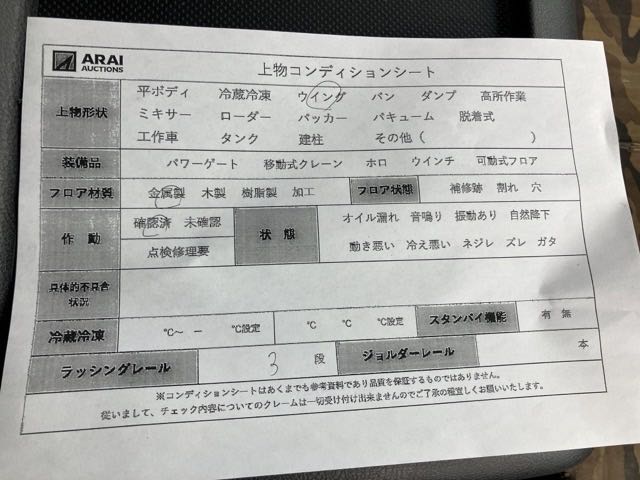 ARAI
AUCTIONS
上物コンディションシート
上物形状
平ボディ 冷蔵冷凍 ウイング バン ダンプ 高所作業
ミキサー ローダー パッカー バキューム 脱着式
工作車 タンク 建柱 その他( )
装備品 パワーゲート 移動式クレーン ホロ ウインチ 可動式フロア
フロア材質 金属製 木製 樹脂製 加工 フロア状態 補修跡 割れ 穴
作動
確認済 未確認
点検修理要
状態
オイル漏れ 音鳴り 振動あり 自然降下
動き悪い 冷え悪い ネジレ ズレ ガタ
具体的不具合
状況
冷蔵冷凍 ℃~ ー ℃設定 ℃ ℃ ℃設定 スタンバイ機能 有 無
ラッシングレール 3 段 ジョルダーレール 本
※コンディションシートはあくまでも参考資料であり品質を保証するものではありません。
従いまして、チェック内容についてのクレームは一切受け付け出来ませんのでご了承の程宜しくお願いいたします。